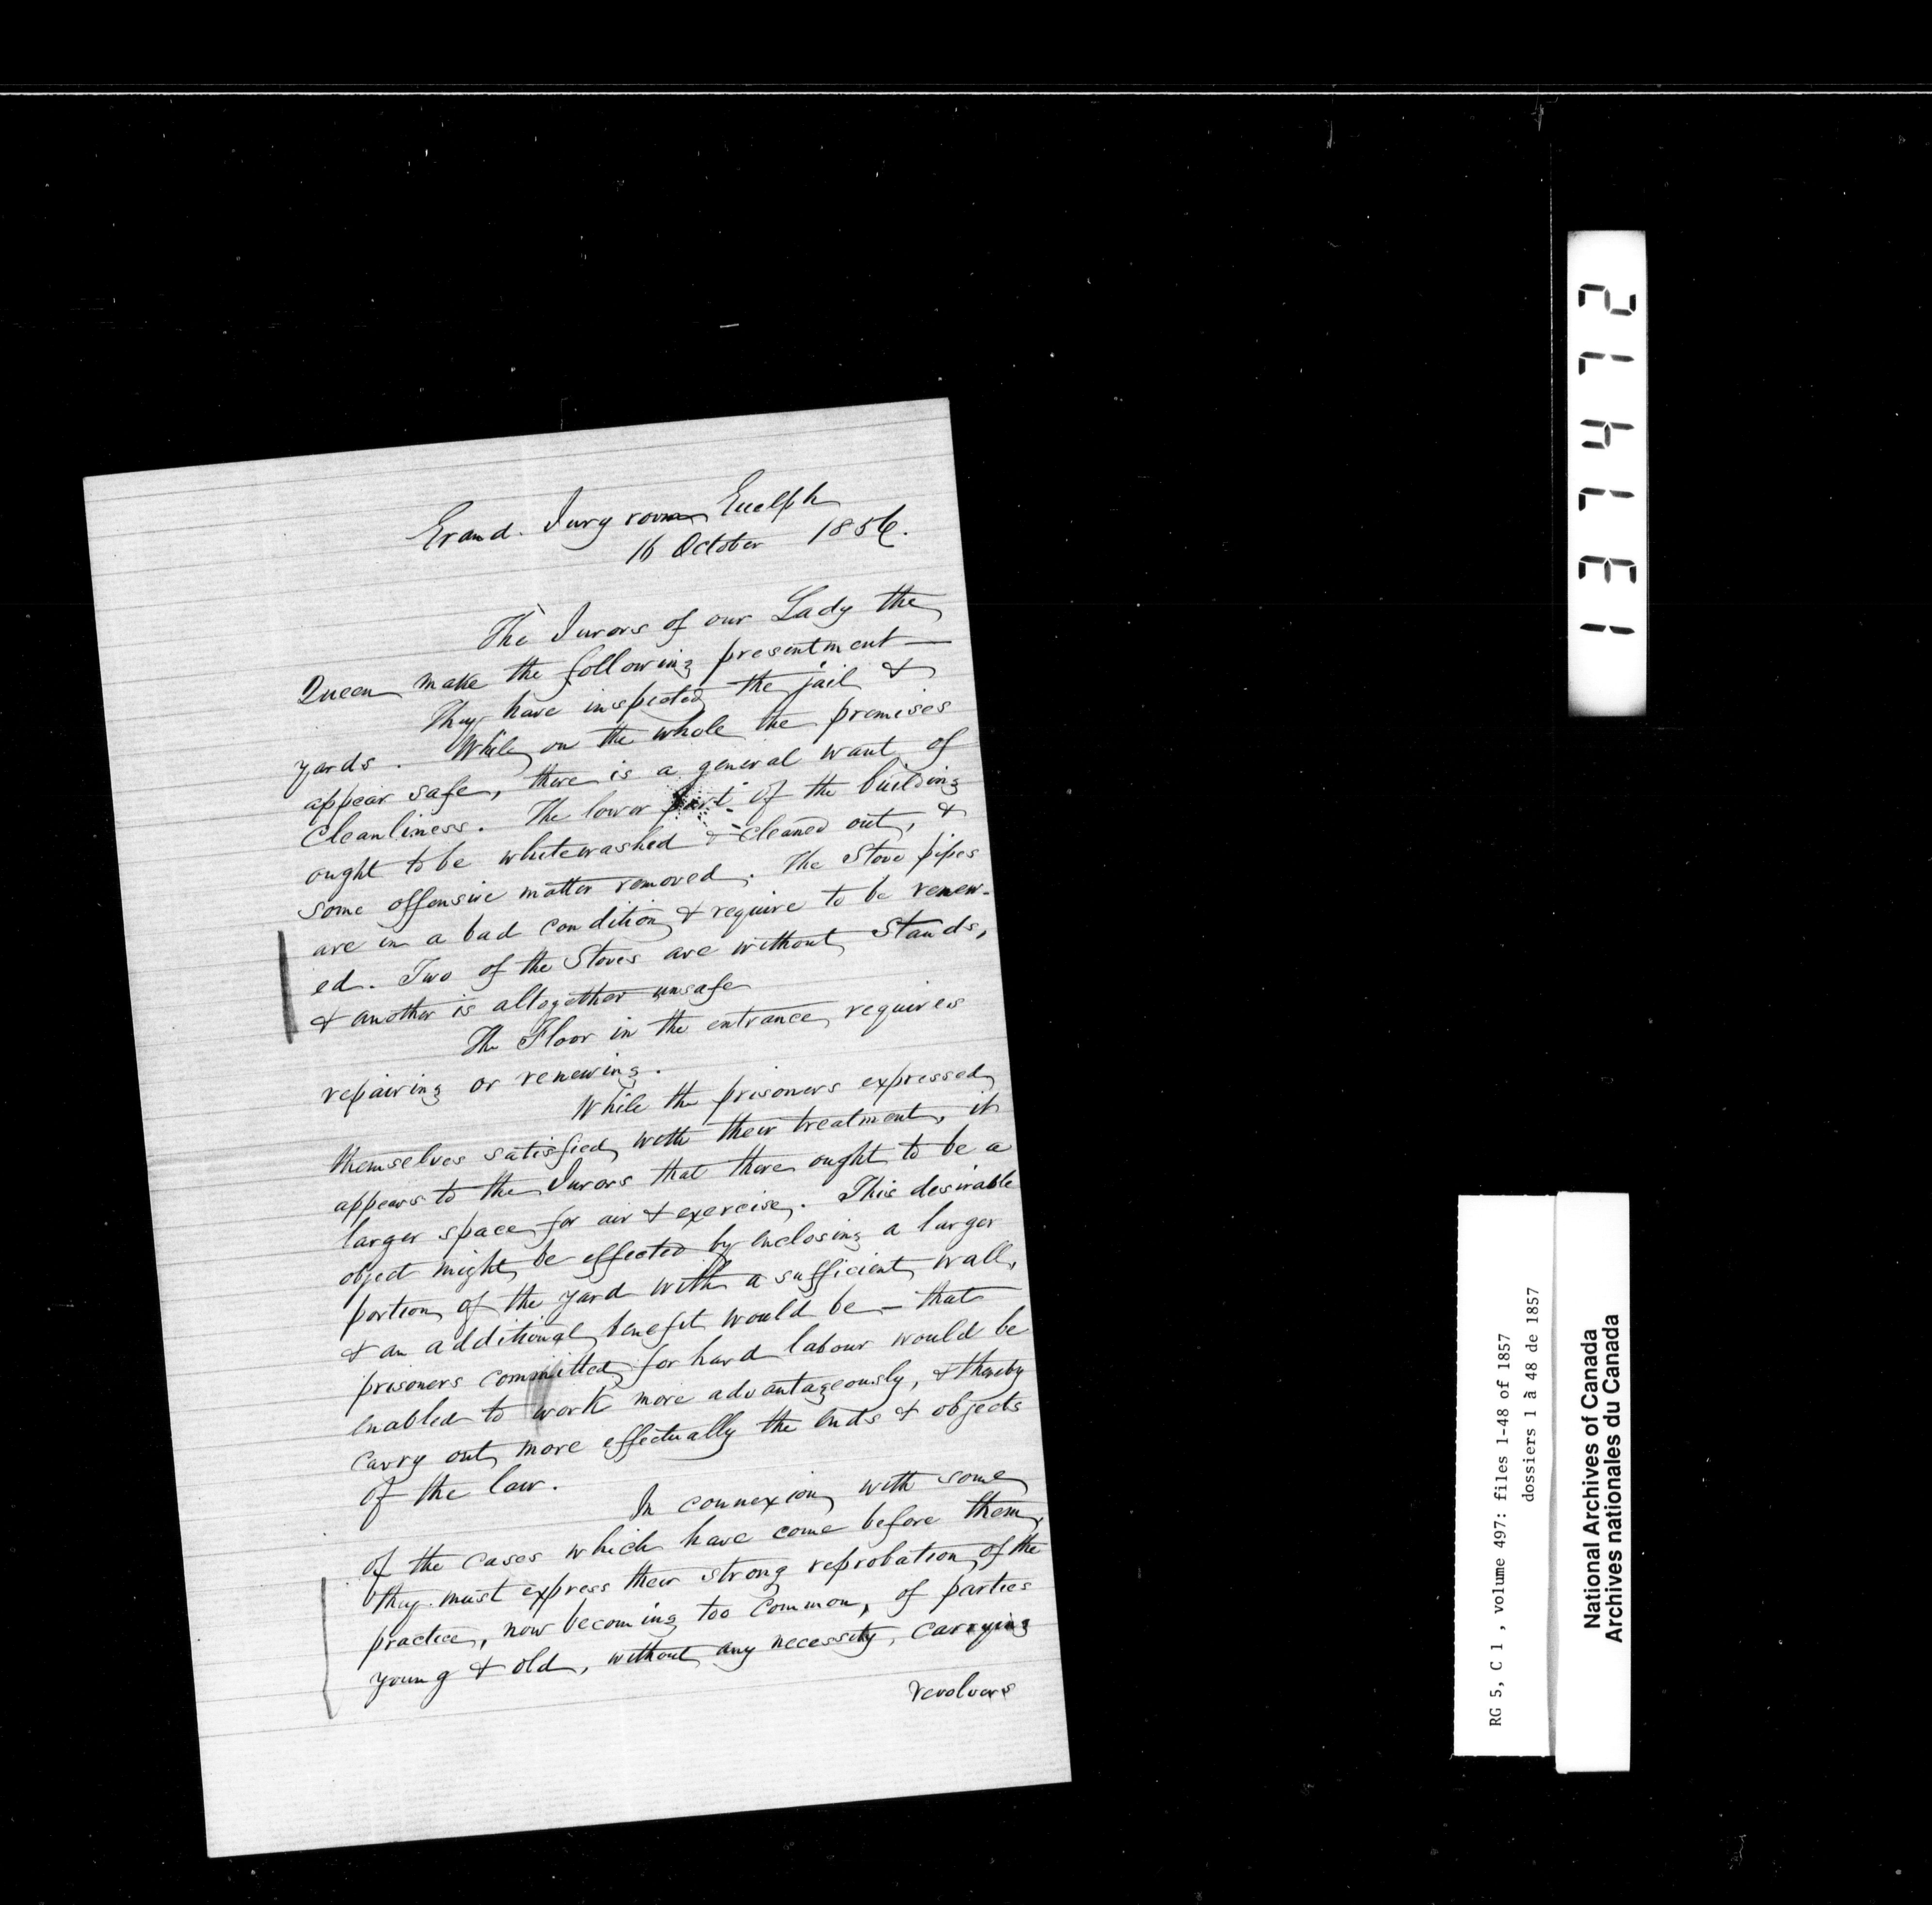 Grand Jury room Guelph
16 October 1856.
The Jurors of our Lady the
Queen make the following presentment —
They have inspected the jail &
yards. While on the whole the premises
appear safe, there is a general want of
cleanliness. The lower part of the building
ought to be whitewashed & cleaned out, &
some offensive matter removed. The Stove pipes
are in a bad condition & require to be renew-
ed. Two of the Stoves are without Stands,
& another is altogether unsafe
The Floor in the entrance requires
repairing or renewing.
While the prisoners expressed
themselves satisfied with their treatment, it
appears to the Jurors that there ought to be a
larger space for air & exercise. This desirable
object might be effected by enclosing a larger
portion of the yard with a sufficient wall,
& an additional benefit would be — that
prisoners committed for hard labour would be
enabled to work more advantageously, & thereby
carry out more effectually the ends & objects
of the law.
In connexion with some
of the cases which have come before them,
they must express their strong reprobation of the
practice, now becoming too common, of parties
young & old, without any necessity, carrying
revolvers
137472
RG 5, C 1, volume 497: files 1-48 of 1857
dossiers 1 à 48 de 1857
National Archives of Canada
Archives nationales du Canada